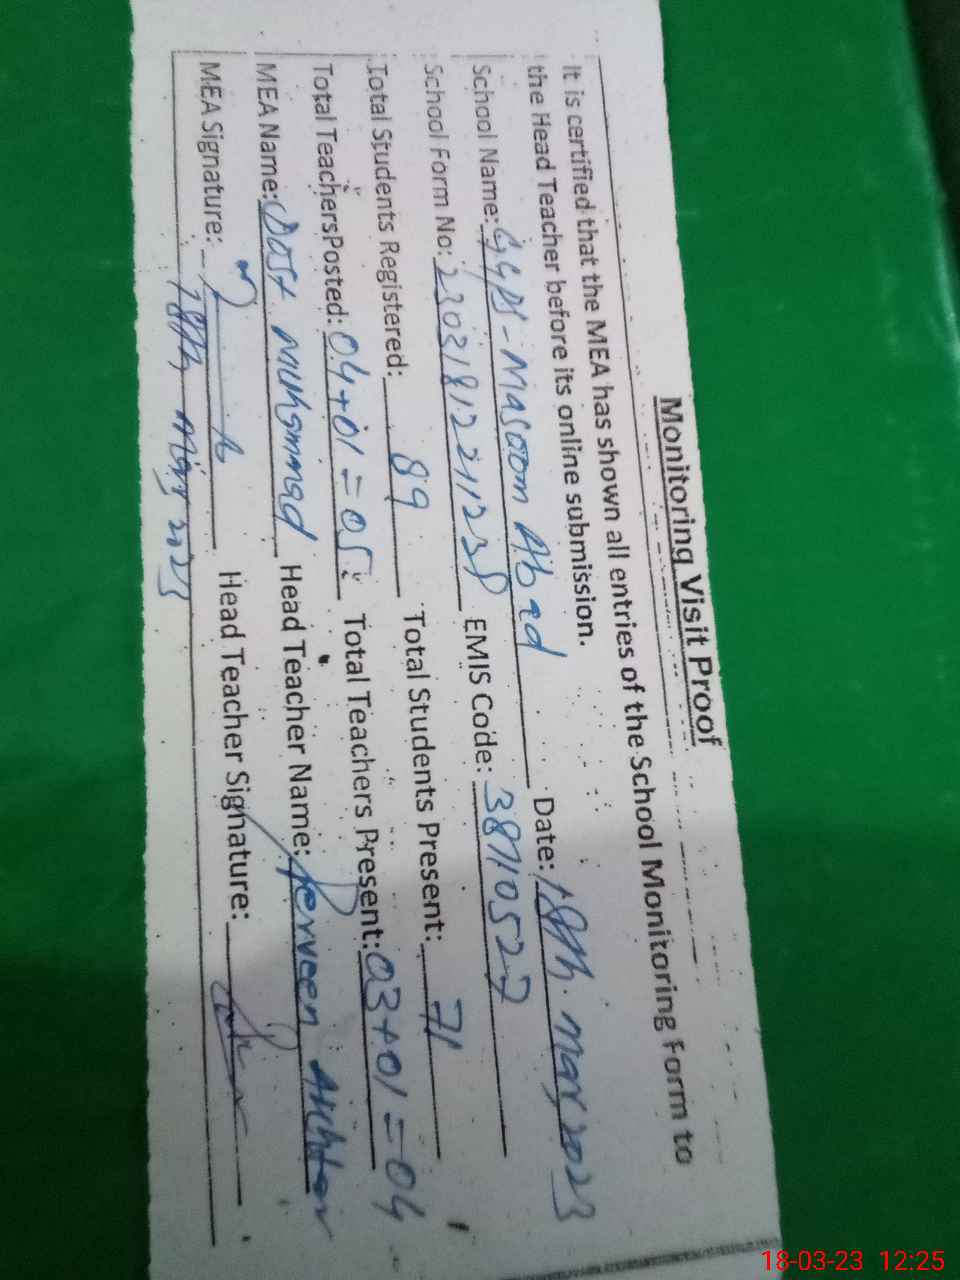 Monitoring Visit Proof
It is certified that the MEA has shown all entries of the School Monitoring Form to
the Head Teacher before its online submission.
School Name: GGPS-Masoom Abad Date: 18th. Mar, 2023
School Form No: 23031812211238 EMIS Code: 38710527
Total Students Registered: 89 Total Students Present: 71
Total TeachersPosted: 04+01=05 Total Teachers Present: 03+01=04
MEA Name: Dost Muhammad Head Teacher Name: Perveen Akhtar
MEA Signature: Head Teacher Signature:
18th Mar, 2023
18-03-23 12:25